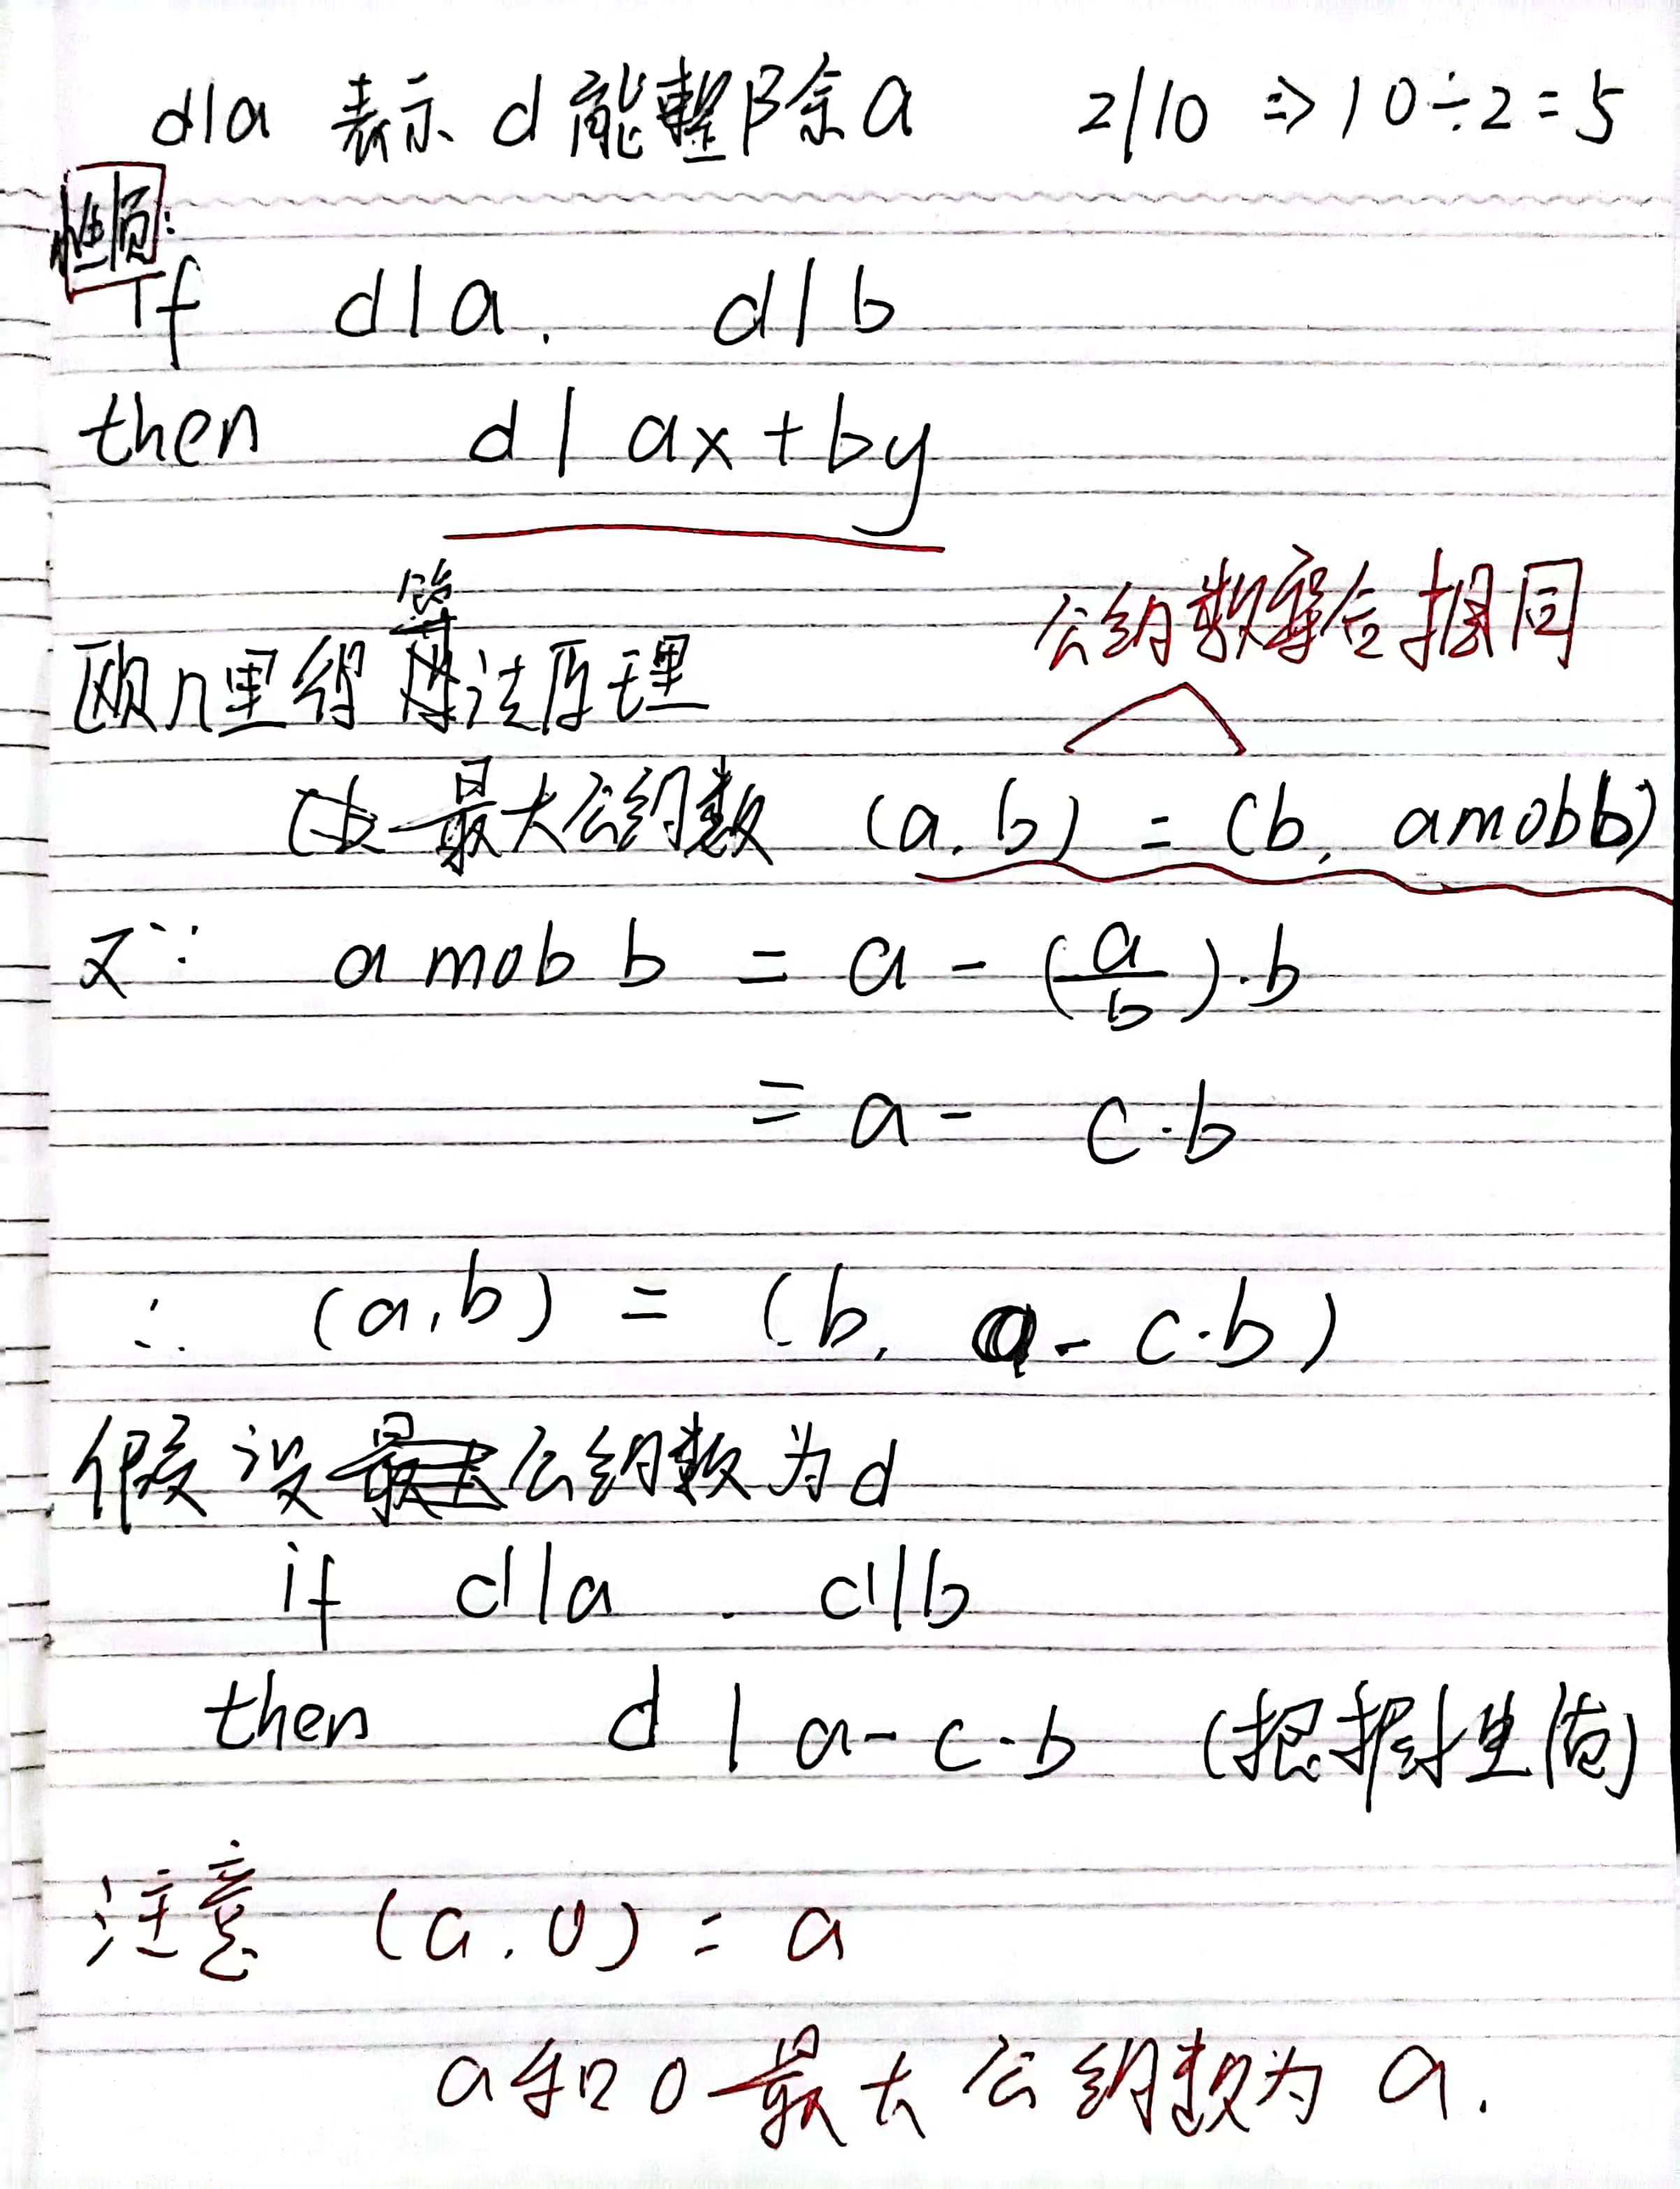 d|a 表示 d 能整除 a 2|10 => 10÷2=5
性质:
If d|a. d|b
then d | ax+by
算
欧几里得法原理
公约数集合相同
最大公约数 (a, b) = (b, amobb)
又∵ a mob b = a - (a/b)·b
= a - c·b
∴ (a,b) = (b, a - c·b)
假设公约数为d
if d|a . d|b
then d | a-c·b (根据性质)
注意 (a, 0) = a
a和0最大公约数为 a.